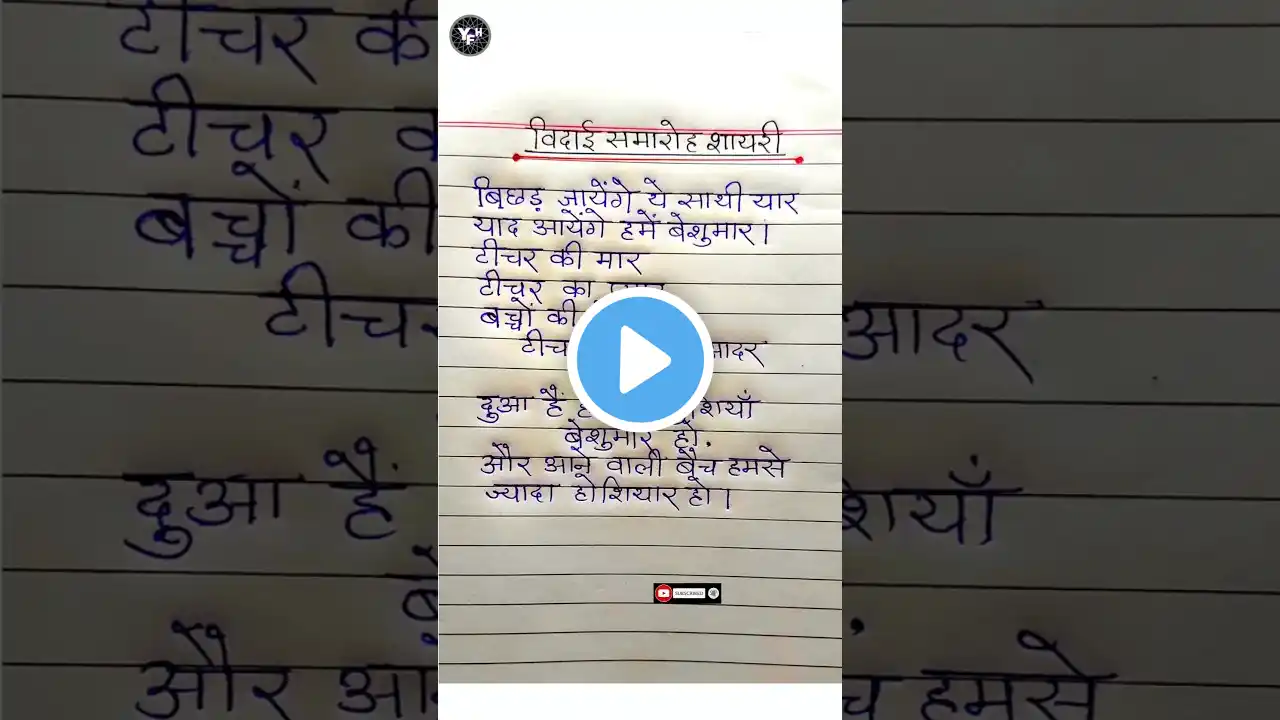 YFH
विदाई समारोह शायरी
बिछड़ जायेंगे ये साथी यार
याद आयेंगे हमें बेशुमार।
टीचर की मार
टीचर का
बच्चों की
आदर
दुआ है
बेशुमार हो.
और आने वाली बैच हमसे
ज्यादा होशियार हो।
SUBSCRIBED